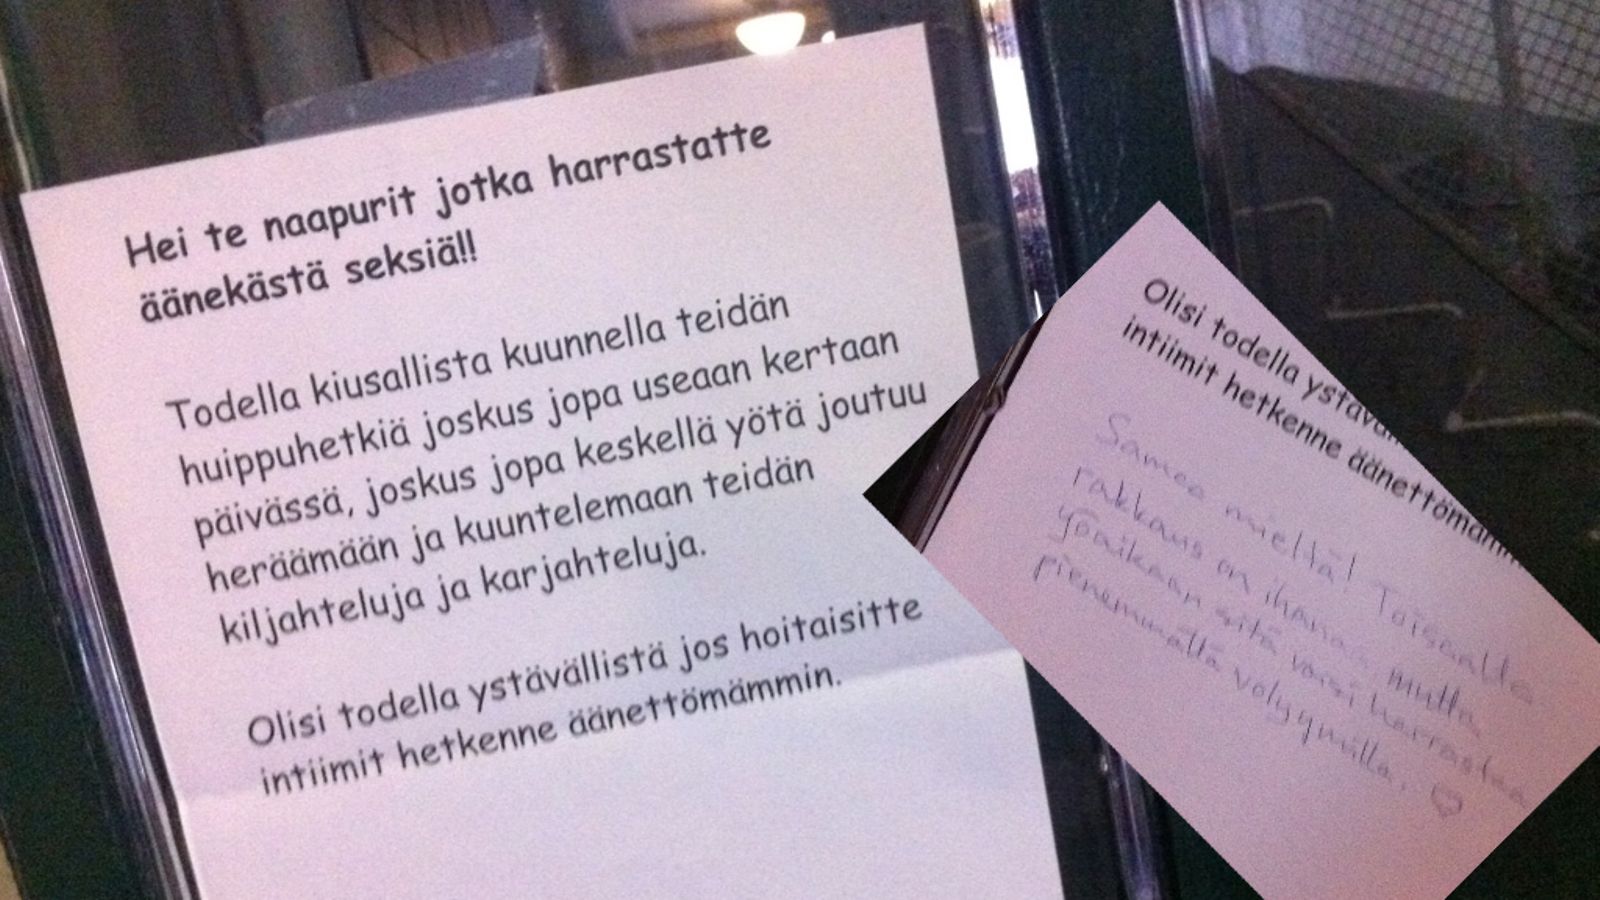 Hei te naapurit jotka harrastatte
äänekästä seksiä!!
Todella kiusallista kuunnella teidän
huippuhetkiä joskus jopa useaan kertaan
päivässä, joskus jopa keskellä yötä joutuu
heräämään ja kuuntelemaan teidän
kiljahteluja ja karjahteluja.
Olisi todella ystävällistä jos hoitaisitte
intiimit hetkenne äänettömämmin.
Olisi todella ystäv
intiimit hetkenne äänettömämm
Samaa mieltä! Toisaalta
rakkaus on ihanaa, mutta
yöaikaan sitä voisi harrastaa
pienemmällä volyymilla, ♡